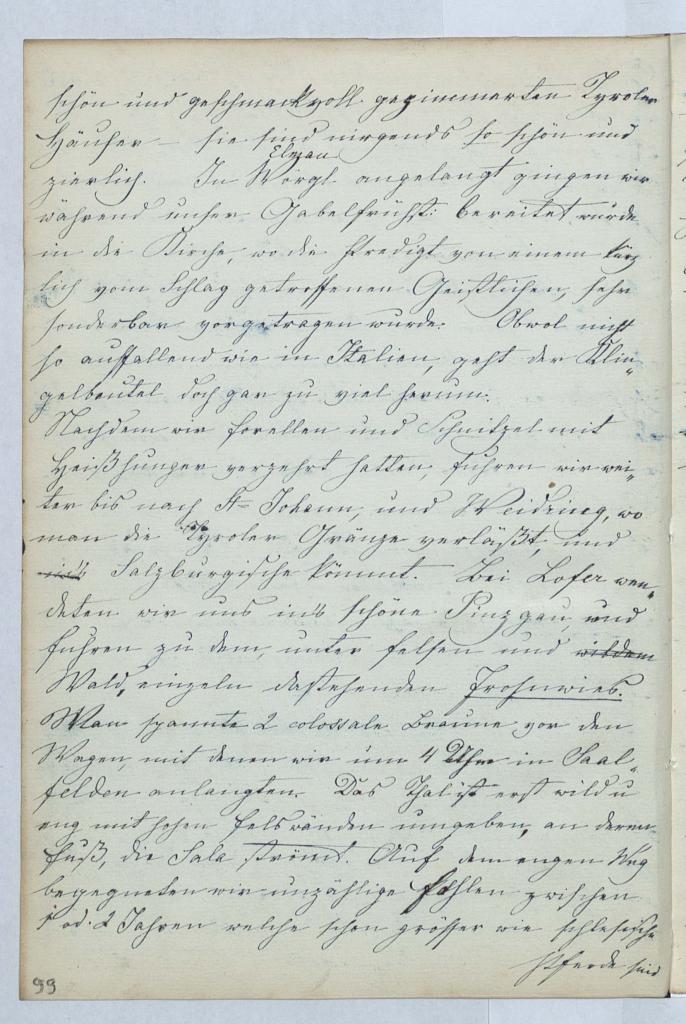 schön und geschmackvoll gezimmerten Tyroler
Häuser – sie sind nirgends so schön und
Elmau
zierlich. In Wörgl angelangt gingen wir
während unser Gabelfrühst: bereitet wurde
in die Kirche, wo die Predigt von einem kürz
lich vom Schlag getroffenen Geistlichen, sehr
sonderbar vorgetragen wurde. Obwol nicht
so auffallend wie in Italien, geht der Klin„
gelbeutel doch gar zu viel herum.
Nachdem wir Forellen und Schnitzel mit
Heißhunger verzehrt hatten, fuhren wir wei„
ter bis nach St= Johann, und Weidring, wo
man die Tyroler Gränze verläßt, und
in's Salzburgische kömmt. Bei Lofer wen„
deten wir uns in's schöne Pinzgau und
fuhren zu dem, unter Felsen und wildem
Wald, einzeln dastehenden Frohnwies.
Man spannte 2 colossale Braune vor den
Wagen, mit denen wir um 4 Uhr in Saal„
felden anlangten. Das Thal ist erst wild u
eng mit hohen Felswänden umgeben, an deren
Fuß, die Sala strömt. Auf dem engen Weg
begegneten wir unzählige Fohlen zwischen
1 od: 2 Jahren welche schon grösser wie schlesische
Pferde sind
99